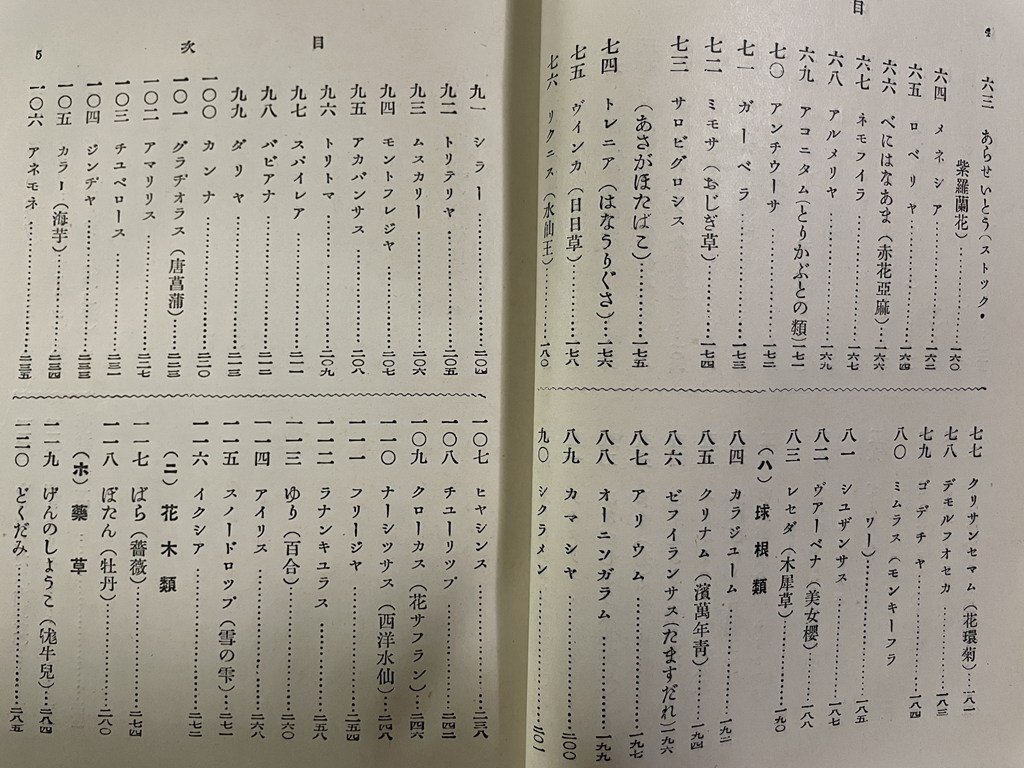 目
四
六三 あらせいとう(ストック・
紫羅蘭花)…………一六〇
六四 メネシア…………一六二
六五 ロベリヤ…………一六四
六六 べにはなあま(赤花亞麻)……一六六
六七 ネモフイラ…………一六八
六八 アルメリヤ…………一六九
六九 アコニタム(とりかぶとの類)一七一
七〇 アンチウーサ…………一七二
七一 ガーベラ…………一七三
七二 ミモサ(おじぎ草)…………一七四
七三 サロピグロシス
(あさがほたばこ)…………一七五
七四 トレニア(はなうりぐさ)……一七六
七五 ヴインカ(日日草)…………一七八
七六 リクニス(水仙王)…………一八〇
七七 クリサンセマム(花環菊)……一八一
七八 デモルフオセカ…………一八三
七九 ゴデチヤ…………一八四
八〇 ミムラス(モンキーフラ
ワー)…………一八五
八一 シユザンサス…………一八七
八二 ヴアーベナ(美女櫻)…………一八八
八三 レセダ(木犀草)…………一九〇
(ハ) 球根類
八四 カラジユーム…………一九二
八五 クリナム(濱萬年靑)…………一九四
八六 ゼフイランサス(たますだれ)一九六
八七 アリウム…………一九七
八八 オーニンガラム…………一九九
八九 カマシヤ…………二〇〇
九〇 シクラメン…………二〇一
目次
5
九一 シラー…………二〇四
九二 トリテリヤ…………二〇五
九三 ムスカリー…………二〇六
九四 モントフレジヤ…………二〇七
九五 アカパンサス…………二〇八
九六 トリトマ…………二〇九
九七 スパイレア…………二一一
九八 バビアナ…………二一二
九九 ダリヤ…………二一三
一〇〇 カンナ…………二二〇
一〇一 グラヂオラス(唐菖蒲)……二二三
一〇二 アマリリス…………二二七
一〇三 チユベロース…………二三一
一〇四 ジンヂヤ…………二三三
一〇五 カラー(海芋)…………二三四
一〇六 アネモネ…………二三五
一〇七 ヒヤシンス…………二三八
一〇八 チユーリツプ…………二四二
一〇九 クローカス(花サフラン)……二四六
一一〇 ナーシツサス(西洋水仙)……二四八
一一一 フリージヤ…………二五四
一一二 ラナンキユラス…………二五八
一一三 ゆり(百合)…………二六〇
一一四 アイリス…………二六八
一一五 スノードロツプ(雪の雫)……二七一
一一六 イクシア…………二七二
(ニ) 花木類
一一七 ばら(薔薇)…………二七四
一一八 ぼたん(牡丹)…………二八〇
(ホ) 藥草
一一九 げんのしようこ(牻牛兒)……二八四
一二〇 どくだみ…………二八五